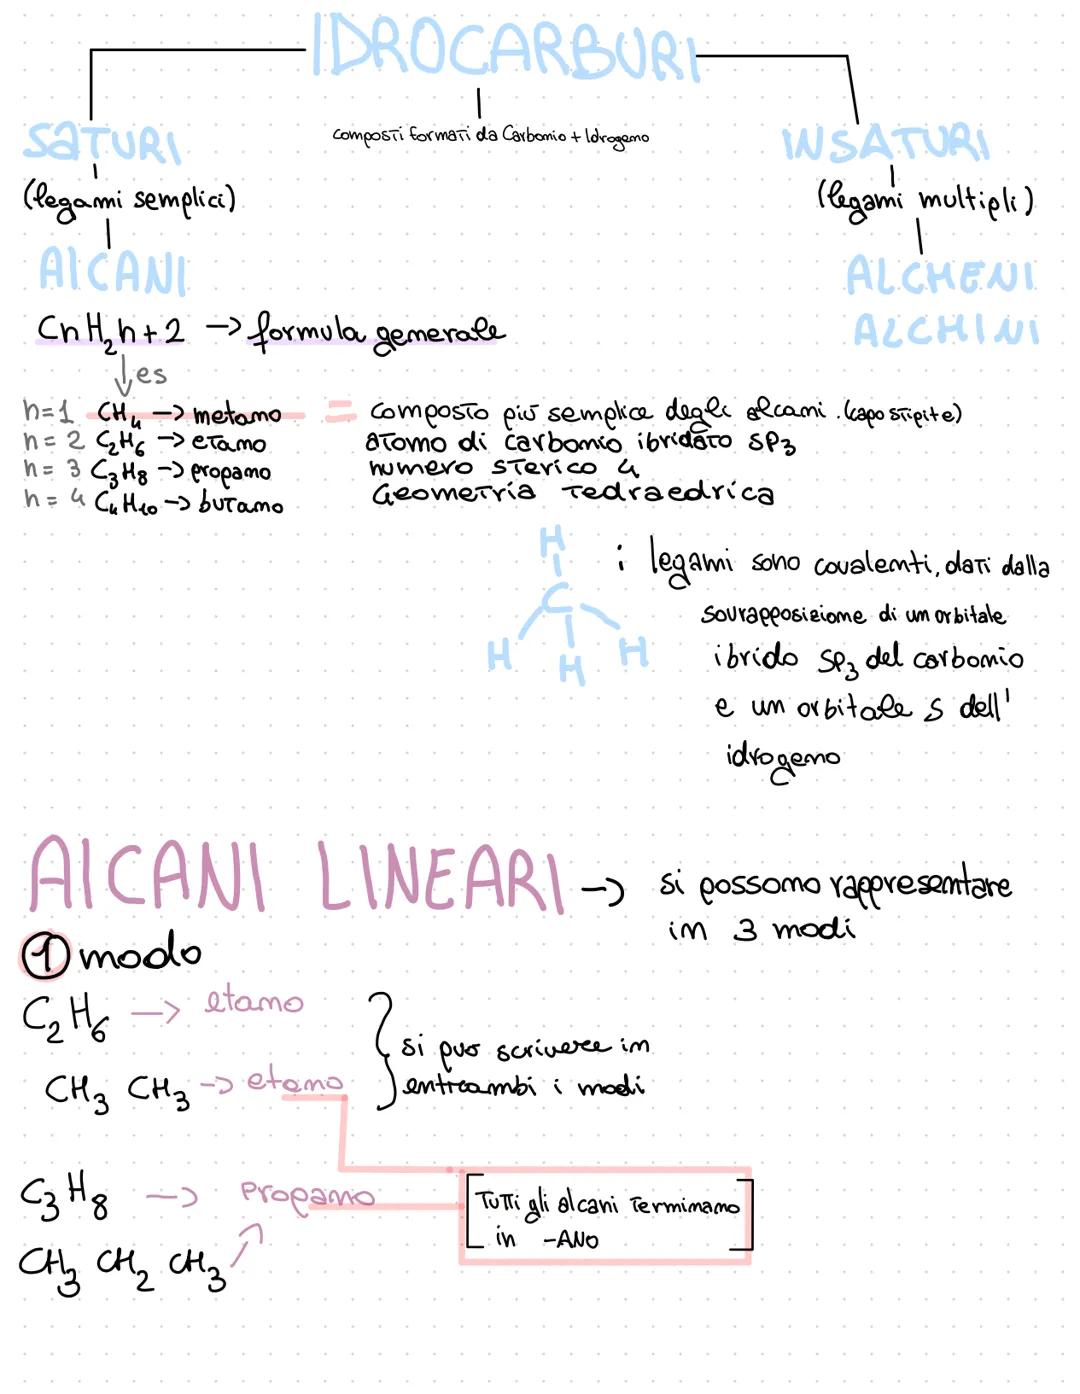 IDROCARBURI
composti formati da Carbonio + Idrogeno
SATURI
(legami semplici)
AlCANI
INSATURI
(legami multipli)
ALCHENI
ALCHINI
CnH₂n+2 -> formula generale
↓es
n=1 CH₄ -> metano = composto più semplice degli alcani. (capo stipite)
n=2 C₂H₆ -> etano atomo di carbonio ibridato SP₃
n=3 C₃H₈ -> propano numero sterico 4
n=4 C₄H₁₀ -> butano Geometria Tedraedrica
H
C
H H H
i legami sono covalenti, dati dalla
sovrapposizione di un orbitale
ibrido SP₃ del carbonio
e un orbitale s dell'
idrogeno
AlCANI LINEARI -> si possono rappresentare
in 3 modi
1 modo
C₂H₆ -> etano
CH₃ CH₃ -> etano
} si può scrivere in
entrambi i modi
C₃H₈ -> propano
CH₃ CH₂ CH₃
[Tutti gli alcani terminano
in -ANO]